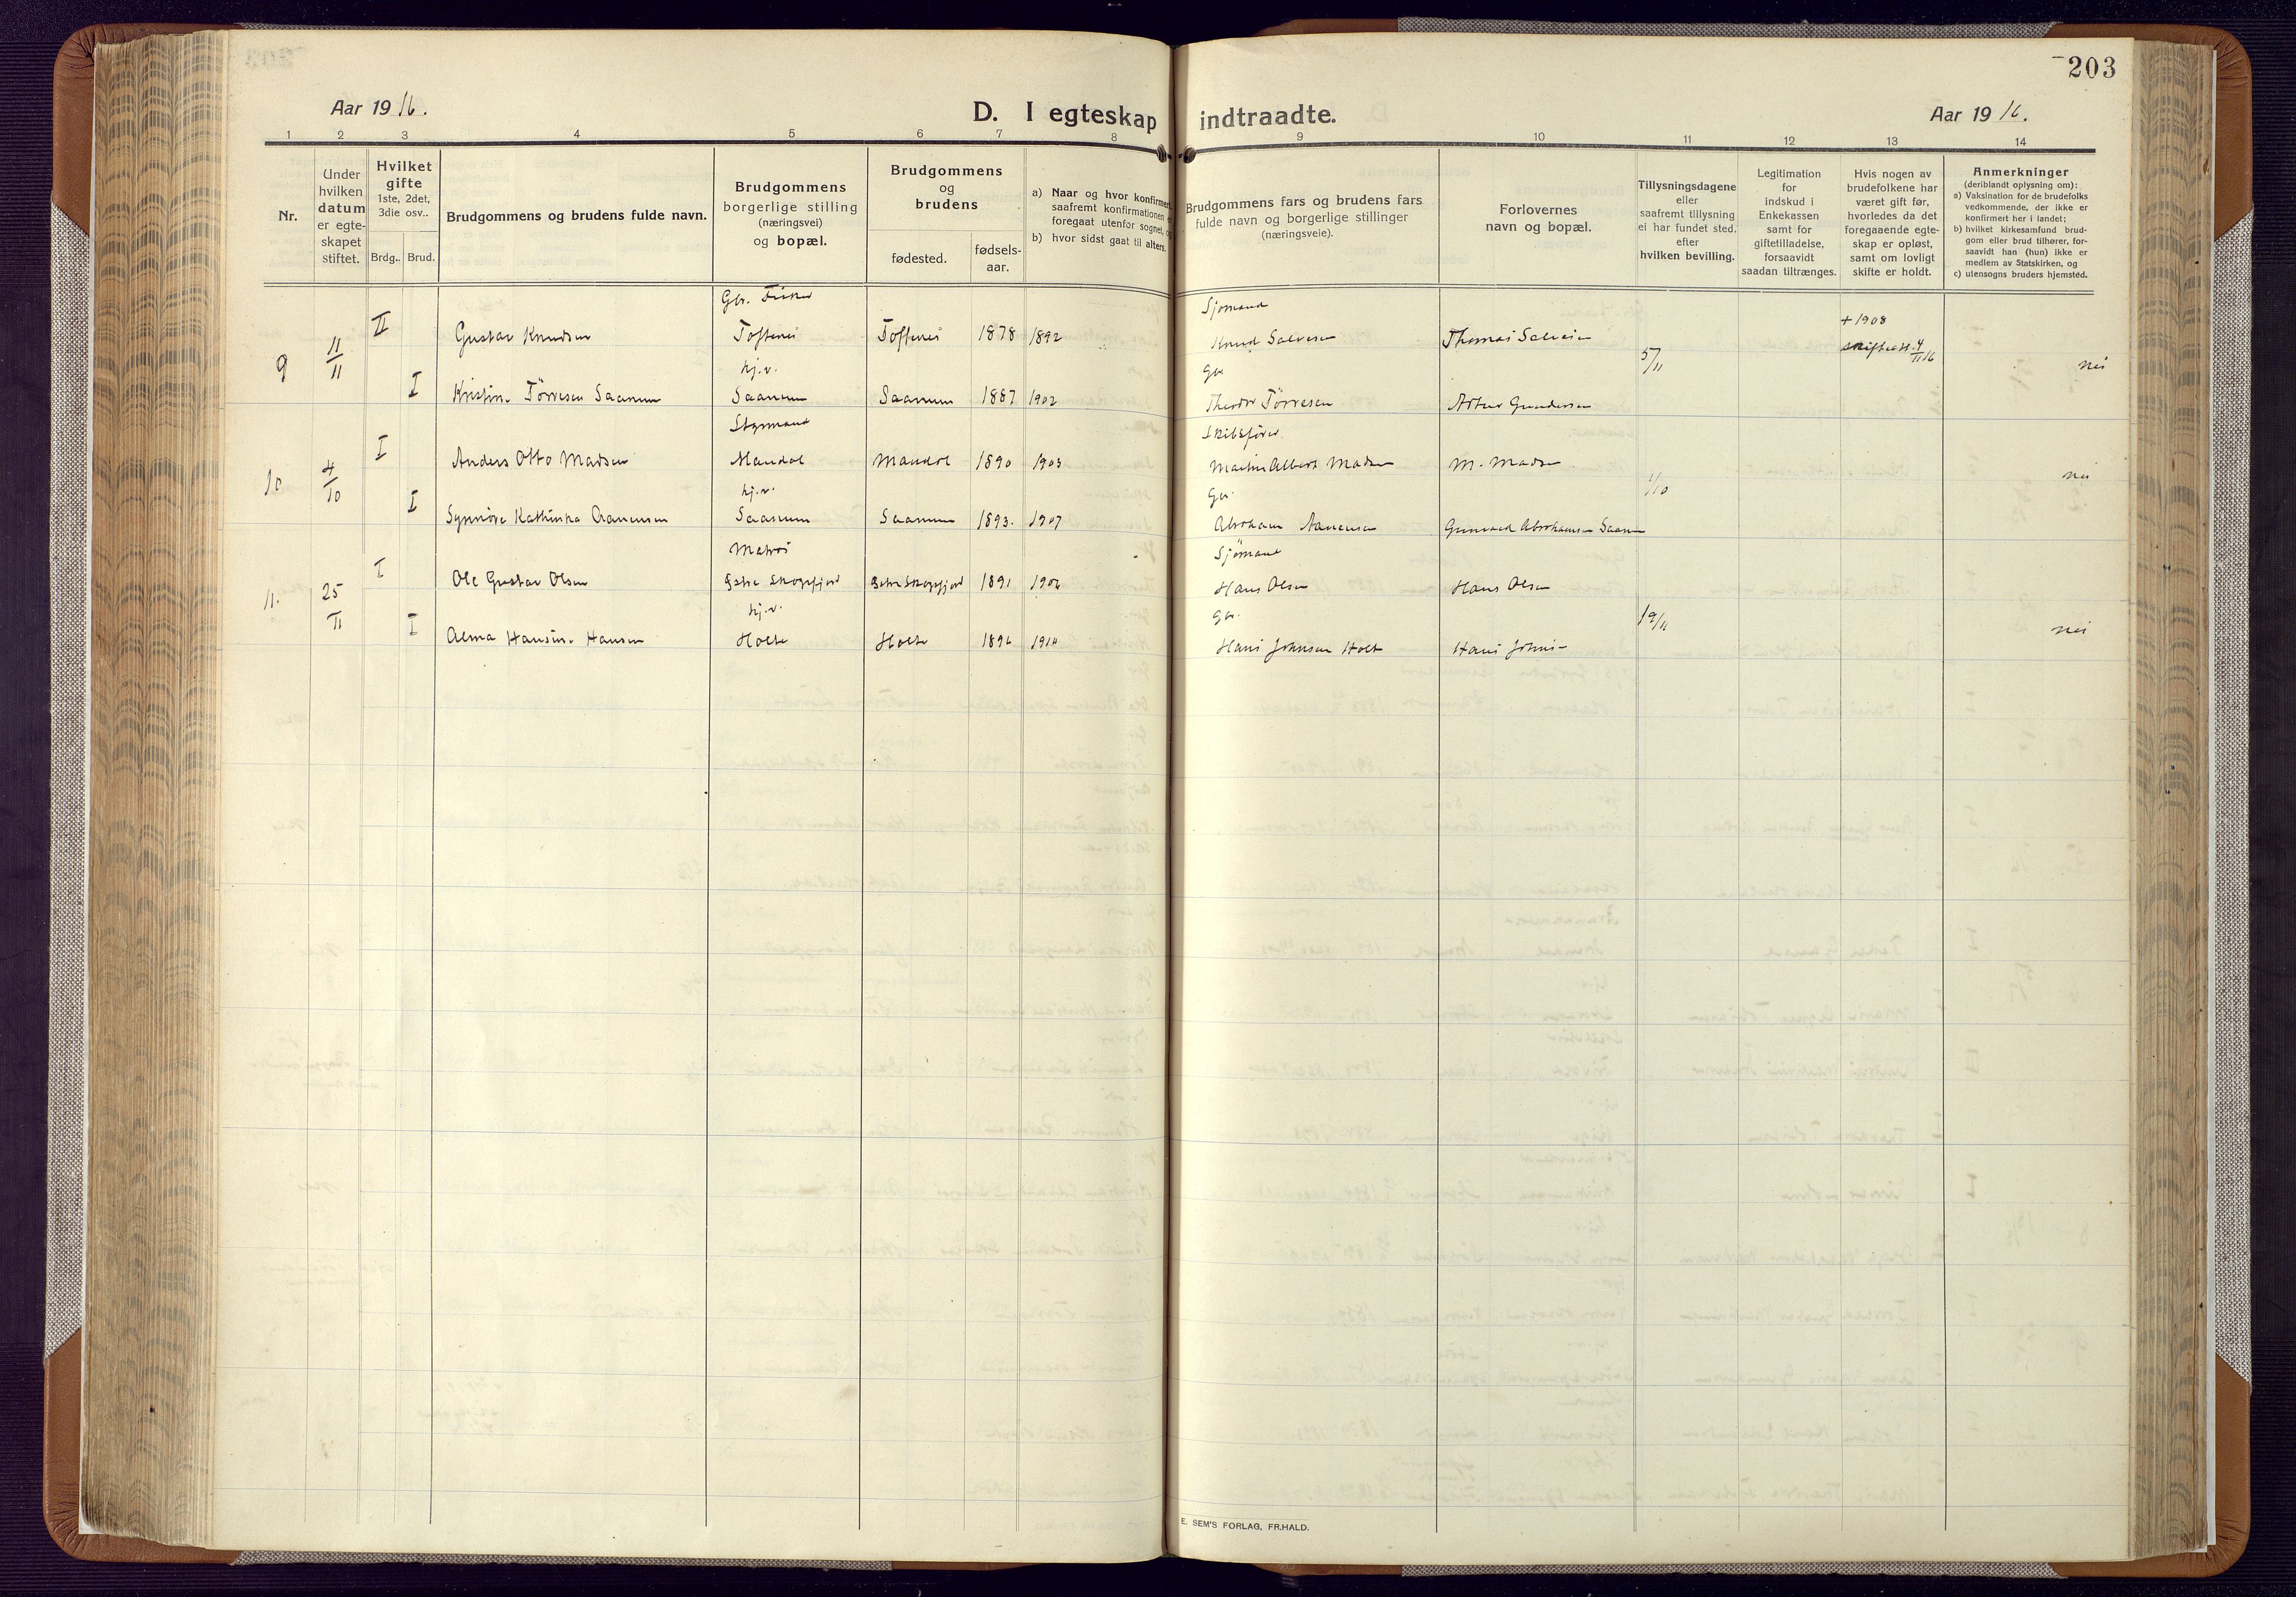 203
Aar 19 16.
D. I egteskap indtraadte.
Aar 19 16.
1 2 3 4 5 6 7 8 9 10 11 12 13 14
Nr.
Under
hvilken
datum
er egte-
skapet
stiftet.
Hvilket
gifte
1ste, 2det,
3die osv..
Brdg..
Brud.
Brudgommens og brudens fulde navn.
Brudgommens
borgerlige stilling
(næringsvei)
og bopæl.
Brudgommens
og
brudens
fødested.
fødsels-
aar.
a) Naar og hvor konfirmert,
saafremt konfirmationen er
foregaat utenfor sognet, og
b) hvor sidst gaat til alters.
Brudgommens fars og brudens fars
fulde navn og borgerlige stillinger
(næringsveie).
Forlovernes
navn og bopæl.
Tillysningsdagene
eller
saafremt tillysning
ei har fundet sted,
efter
hvilken bevilling.
Legitimation
for
indskud i
Enkekassen
samt for
giftetilladelse,
forsaavidt
saadan tiltrænges.
Hvis nogen av
brudefolkene har
været gift før,
hvorledes da det
foregaaende egte-
skap er opløst,
samt om lovligt
skifte er holdt.
Anmerkninger
(deriblandt oplysning om):
a) Vaksination for de brudefolks
vedkommende, der ikke er
konfirmert her i landet;
b) hvilket kirkesamfund brud-
gom eller brud tilhører, for-
saavidt han (hun) ikke er
medlem av Statskirken, og
c) utensogns bruders hjemsted.
Gbr. Fisker Sjømand
9 11/11 II Gustav Knudsen Toftenes Toftenes 1878 1892 Knud Salvesen Thomas Salvesen + 1908
skifteatt. 4/11 16
hj.v. Gbr 5/11 nei
I Kristine Tørresen Saanum Saanum Saanum 1887 1902 Theodor Tørresen Artur Gundersen
Styrmand Skibsfører
10 4/10 I Anders Otto Madsen Mandal Mandal 1890 1905 Martin Albert Madsen M. Madsen
hj.v. Gbr. 1/10 nei
I Synnøve Kathinka Aanensen Saanum Saanum 1893. 1907 Abraham Aanensen Gunvald Abrahamsen Saanum
Matros Sjømand
11. 25/11 I Ole Gustav Olsen Ytre Skogsfjord Ytre Skogsfjord 1891 1906 Hans Olsen Hans Olsen
hj.v. Gbr. 19/11 nei
I Alma Hansine Hansen Holte Holte 1896 1910 Hans Johnsen Holt Hans Johns-
E. SEM'S FORLAG, FR.HALD.